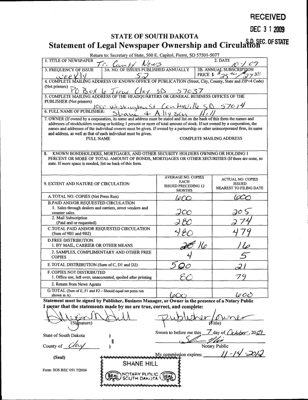 RECEIVED
DEC 31 2009
S.D. SEC. OF STATE
STATE OF SOUTH DAKOTA
Statement of Legal Newspaper Ownership and Circulation
Return to: Secretary of State, 500 E. Capitol, Pierre, SD 57501-5077
1. TITLE OF NEWSPAPER
Tri County News
2. DATE
3. FREQUENCY OF ISSUE
weekly
3A. NO. OF ISSUES PUBLISHED ANNUALLY
52
3B. ANNUAL SUBSCRIPTION
PRICE $
4. COMPLETE MAILING ADDRESS OF KNOWN OFFICE OF PUBLICATION (Street, City, County, State and ZIP+4 Code)
(Not printers)
SD 57037
5. COMPLETE MAILING ADDRESS OF THE HEADQUARTERS OF GENERAL BUSINESS OFFICES OF THE
PUBLISHER (Not printers)
Centerville SD 57014
6. FULL NAME OF PUBLISHER:
Shane & Allyson Hill
7. OWNER (If owned by a corporation, its name and address must be stated and list on the back of this form the names and
addresses of stockholders owning or holding 1 percent or more of total amount of stock. If not owned by a corporation, the
names and addresses of the individual owners must be given. If owned by a partnership or other unincorporated firm, its name
and address, as well as that of each individual must be given.
FULL NAME
COMPLETE MAILING ADDRESS
8. KNOWN BONDHOLDERS, MORTGAGEES, AND OTHER SECURITY HOLDERS OWNING OR HOLDING 1
PERCENT OR MORE OF TOTAL AMOUNT OF BONDS, MORTGAGES OR OTHER SECURITIES (If there are none, so
state. If more space is needed, list on back of this form).
9. EXTENT AND NATURE OF CIRCULATION
AVERAGE NO. COPIES
EACH
ISSUED PRECEDING 12
MONTHS
ACTUAL NO. COPIES
ISSUED
NEAREST TO FILING DATE
A. TOTAL NO. COPIES (Net Press Run)
600
600
B. PAID AND/OR REQUESTED CIRCULATION
1. Sales through dealers and carriers, street vendors and
counter sales.
200
205
2. Mail Subscription
(Paid and/or requested)
280
274
C. TOTAL PAID AND/OR REQUESTED CIRCULATION
(Sum of 9B1 and 9B2)
480
479
D. FREE DISTRIBUTION
1. BY MAIL, CARRIER OR OTHER MEANS
16
16
2. SAMPLES, COMPLIMENTARY AND OTHER FREE
COPIES
4
5
E. TOTAL DISTRIBUTION (Sum of C, D1 and D2)
500
21
F. COPIES NOT DISTRIBUTED
1. Office use, left over, unaccounted, spoiled after printing
80
79
2. Return from News Agents
G. TOTAL (Sum of E, F1 and F2 - Should equal net press run
shown in A)
600
600
Statement must be signed by Publisher, Business Manager, or Owner in the presence of a Notary Public
I swear that the statements made by me are true, correct, and complete:
Allyson Hill
(Signature)
publisher/owner
(Title)
State of South Dakota )
Sworn to before me this 7 day of October, 2009
County of Clay )
Notary Public
(Seal)
My commission expires: 11-14-2012
SHANE HILL
NOTARY PUBLIC
SOUTH DAKOTA